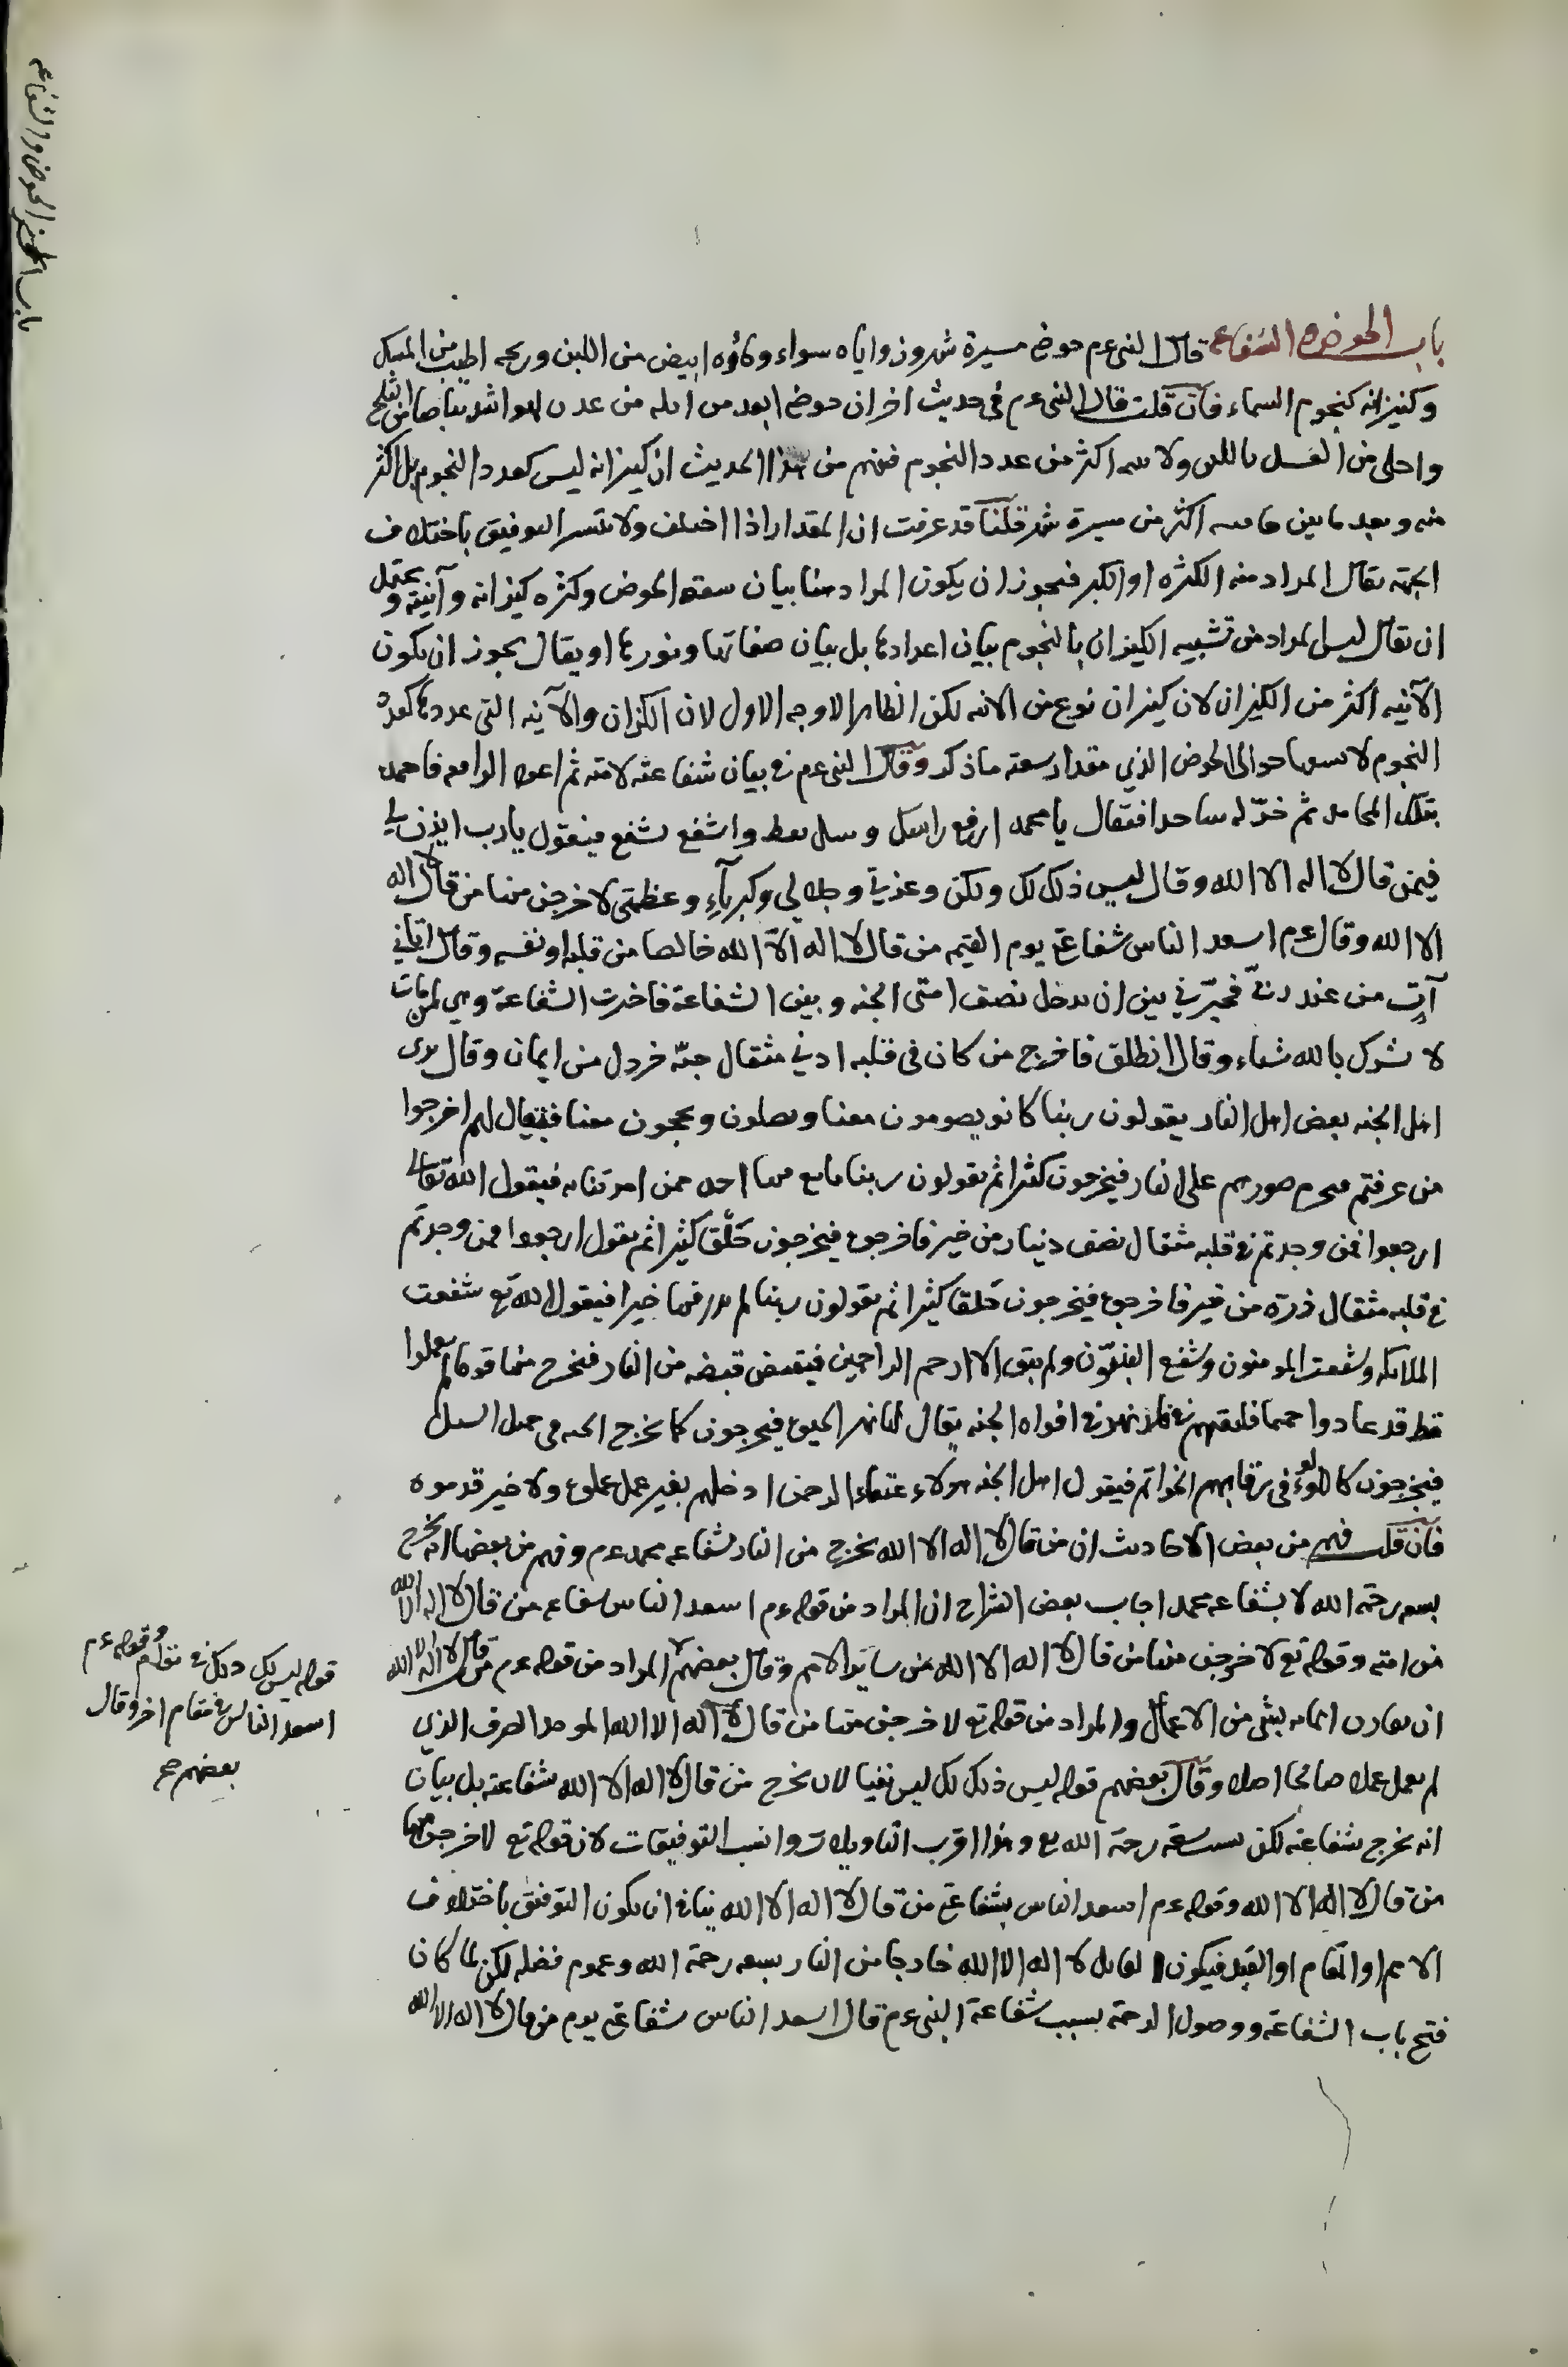 باب الحوض والشفاعه
باب الحوض والشفاعة قال النبى ءم حوضى مسيرة شهر وزواياه سواء وماؤه ابيض من اللبن وريحه اطيب من المسك
وكيزانه كنجوم السماء فان قلت قال النبى ءم فى حديث اخر ان حوضى ابعد من ايله من عدن لهو اشد بياضا من الثلج
واحلى من العسل باللبن ولانيته اكثر من عدد النجوم ففهم من هذا الحديث ان كيزانه ليس كعدد النجوم بل اكثر
منه وبعد ما بين اكثر من مسيرة شهر قلنا قد عرفت ان المقدار اذا اختلف ولا يتيسر التوفيق باختلاف
الجهة يقال المراد منه الكثره او الكبر فيجوز ان يكون المراد هنا بيان سعة الحوض وكثره كيزانه وآنيته ويحتمل
ان يقال ليس المراد من تشبيه الكيزان بالنجوم بيان اعدادها بل بيان صفائها ونورها او يقال يجوز ان يكون
الآنيه اكثر من الكيزان لان كيزان نوع من الانيه لكن الظاهر الاوجه الاول لان الكيزان والآنيه التى عددها كعدد
النجوم لا يسعها حوالى الحوض الذي مقدار سعته ما ذكر وقال النبى ءم فى بيان شفاعته لامته ثم اعود الرابعه فاحمده
بتلك المحامد ثم خرّ له ساجدا فيقال يا محمد ارفع راسك وسل تعط واشفع تشفع فيقول يا رب ايذن لى
فيمن قال لا اله الا الله وقال ليس ذلك لك ولكن وعزتى وجلالى وكبرياءى وعظمتى لاخرجن منها من قال لا اله
الا الله وقال ءم اسعد الناس شفاعتى يوم القيمه من قال لا اله الّا الله خالصا من قلبه او نفسه وقال اتانى
آت من عند ربى فخيّرنى بين ان يدخل نصف امتى الجنه وبين الشفاعة فاخترت الشفاعة وهى لمن مات
لا يشرك بالله شيئا وقال انطلق فاخرج من كان فى قلبه ادنى مثقال حبّة خردل من ايمان وقال يرى
اهل الجنه بعض اهل النار يقولون ربنا كانو يصومون معنا ويصلون ويحجون معنا فيقال لهم اخرجوا
من عرفتم فيحرم صورهم على النار فيخرجون كثيرا ثم يقولون ربنا ما بقى فيها احد ممن امرتنا به فيقول الله تعالى
ارجعوا فمن وجدتم فى قلبه مثقال نصف دنيار من خير فاخرجوه فيخرجون خلقا كثيرا ثم يقول ارجعوا فمن وجدتم
فى قلبه مثقال ذرة من خير فاخرجوه فيخرجون خلقا كثيرا ثم يقولون ربنا لم نذر فيها خيرا فيقول الله تع شفعت
الملائكه وشفعت المومنون وشفع النبيّون ولم يبق الا ارحم الراحمين فيقبض قبضه من النار فيخرج منها قوما لم يعملوا
قط قد عادوا حمما فليقيهم فى نهر فى افواه الجنه يقال لها نهر الحيوة فيخرجون كما يخرج الحبه فى حميل السيل
فيخرجون كاللؤلؤ فى رقابهم الخواتم فيقول اهل الجنه هولاء عتقاء الرحمن ادخلهم بغير عمل عملوه ولا خير قدموه
فان قلت فهم من بعض الاحاديث ان من قال لا اله الا الله يخرج من النار بشفاعه محمد ءم وفهم من بعضها انه يخرج
بسعه رحمة الله لا بشفاعه محمد اجاب بعض الشراح ان المراد من قوله ءم اسعد الناس بشفاعه من قال لا اله الا الله
من امته وقوله تع لاخرجن منها من قال لا اله الا الله من ساير الامم وقال بعضهم المراد من قوله ءم من قال لا اله الا الله
ان يقارن ايمانه بشئ من الاعمال والمراد من قوله تع لاخرجن منها من قال لا اله الا الله الموحد الصرف الذي
لم يعمل عملا صالحا اصلا وقال بعضهم قوله ليس ذلك لك ليس نفيا لان يخرج من قال لا اله الا الله بشفاعته بل بيان
انه يخرج بشفاعته لكن بسبب سعة رحمة الله تع وهذا اقرب التاويلات وانسب التوفيقات لان قوله تع لاخرجن منها
من قال لا اله الا الله وقوله ءم اسعد الناس بشفاعتى من قال لا اله الا الله ينافى ان يكون التوفيق باختلاف
الامم او المقام او القيد فيكون القايل لا اله الا الله خارجا من النار بسعه رحمة الله وعموم فضله لكن لما كان
فتح باب الشفاعة ووصول الرحمة بسبب شفاعة النبى ءم قال اسعد الناس شفاعتى يوم من قال لا اله الا الله
قوله ليس لك ذلك فى مقام وقوله ءم
اسعد الناس فى مقام اخر وقال
بعضهم صح